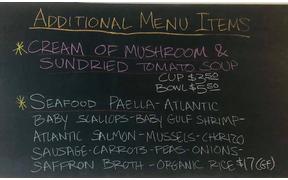 ADDITIONAL MENU ITEMS
* CREAM OF MUSHROOM &
SUNDRIED TOMATO SOUP
CUP $3.50
BOWL $5.50
* SEAFOOD PAELLA - ATLANTIC
BABY SCALLOPS - BABY GULF SHRIMP -
ATLANTIC SALMON - MUSSELS - CHORIZO
SAUSAGE - CARROTS - PEAS - ONIONS -
SAFFRON BROTH - ORGANIC RICE $17 (GF)